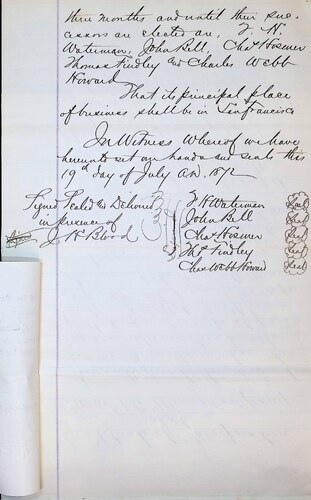 three months and until their suc-
cessors are elected are, F. H.
Waterman, John Bell, Chas Hosmer
Thomas Findley and Charles Webb
Howard
That its principal place
of business shall be in San Francisco
In Witness Whereof we have
hereunto set our hands and seals this
19th day of July A.D. 1872
Signed Sealed & Delivered
in presence of
J. N. Blood
F H Waterman Seal
John Bell Seal
Chas Hosmer Seal
Thos Findley Seal
Chas Webb Howard Seal